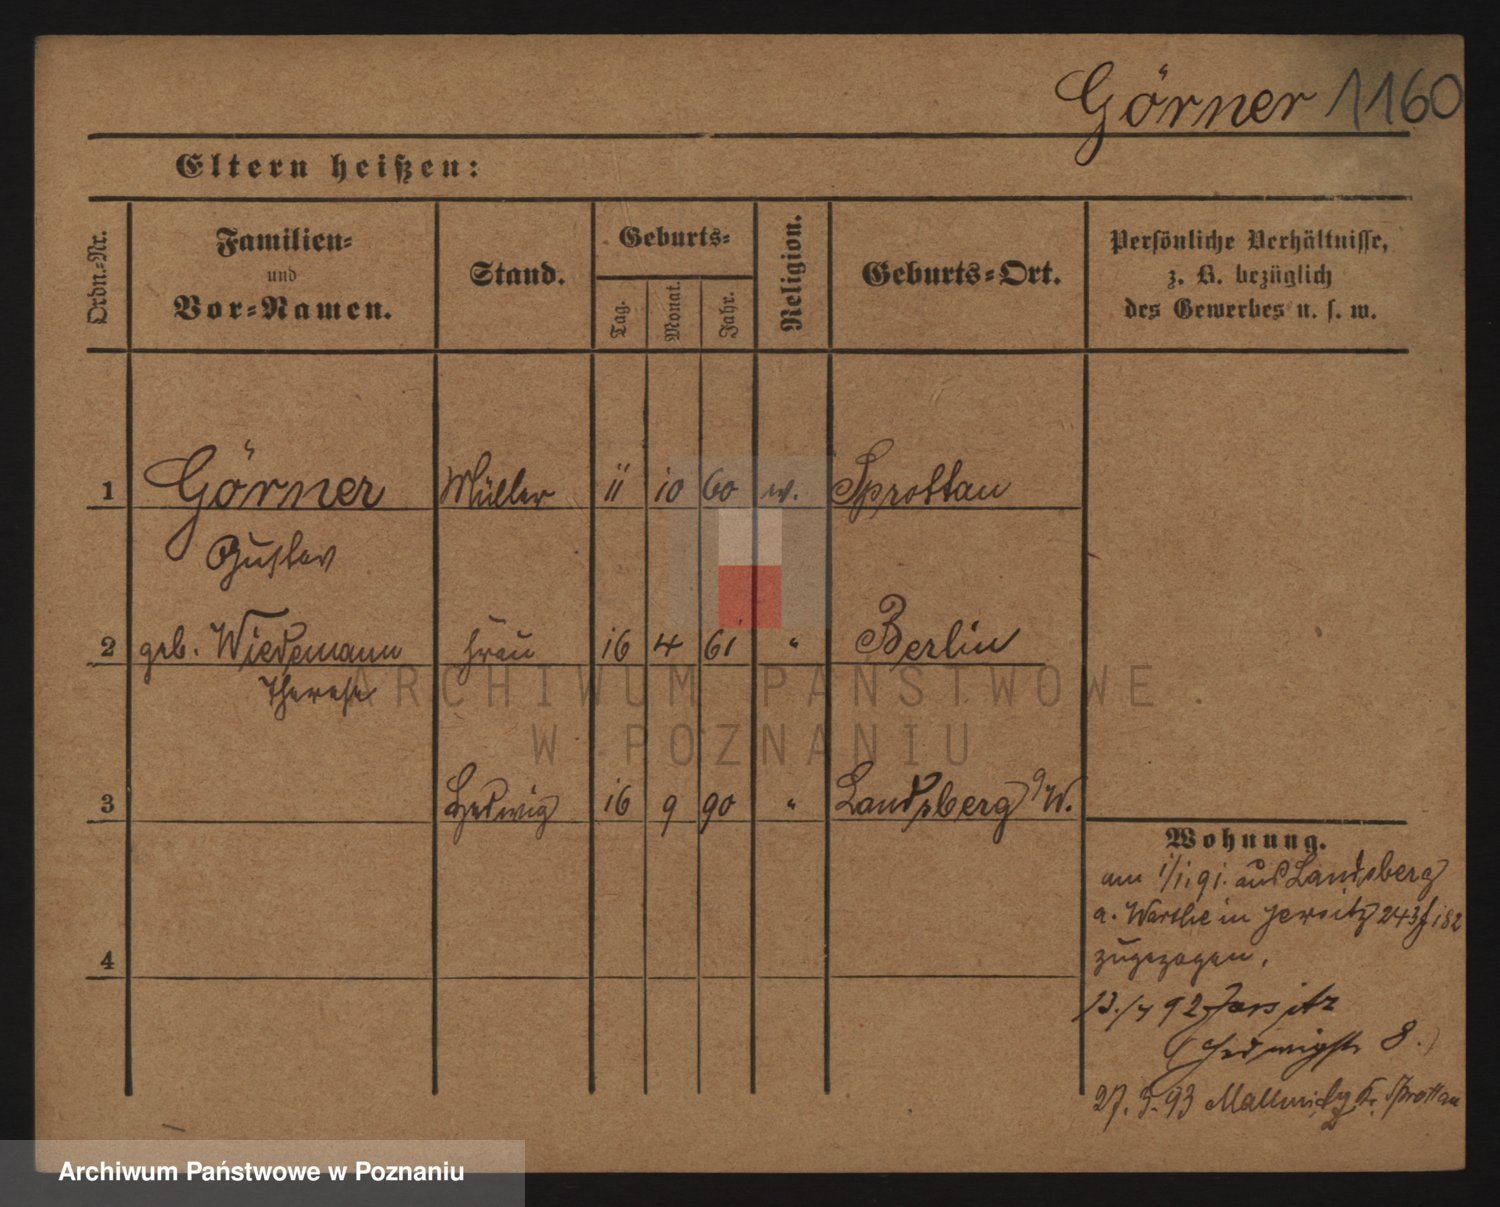 Görner 1160
Eltern heißen:
Ordn.-Nr.
Familien-
und
Vor-Namen.
Stand.
Geburts-
Tag.
Monat.
Jahr.
Religion.
Geburts-Ort.
Persönliche Verhältnisse,
z. B. bezüglich
des Gewerbes u. s. w.
1 Görner Müller 11 10 60 ev. Sprottau
Gustav
2 geb. Wiedemann Frau 16 4 61 " Berlin
Therese
ARCHIWUM PAŃSTWOWE
W POZNANIU
3 Hedwig 16 9 90 " Landsberg a/W.
Wohnung.
am 1/1.91. aus Landsberg
a. Warthe in Jersitz 243 182
zugezogen.
4
13./4 92 Jersitz
Hedwigstr 8.
27. 3. 93 Kr. Sprottau
Archiwum Państwowe w Poznaniu